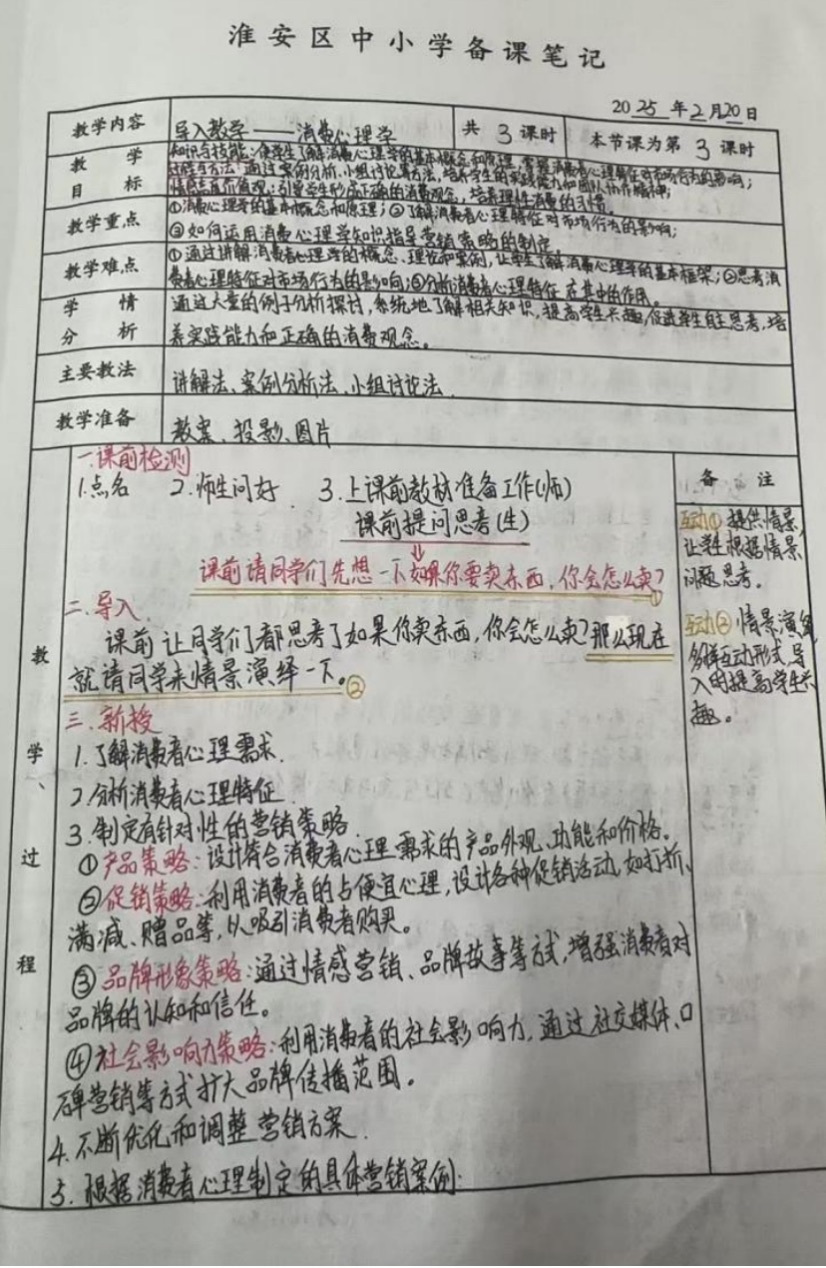 淮安区中小学备课笔记
2025年2月20日
教学内容 导入教学——消费心理学 共3课时 本节课为第3课时
教学目标 知识与技能:使学生了解消费心理学的基本概念和原理,掌握消费者心理特征对市场行为的影响;
过程与方法:通过案例分析、小组讨论等方法,培养学生的实践能力和团队协作精神;
情感态度价值观:引导学生形成正确的消费观念,培养理性消费的习惯。
教学重点 ①消费心理学的基本概念和原理;②了解消费者心理特征对市场行为的影响;
③如何运用消费心理学知识指导营销策略的制定。
教学难点 ①通过讲解消费者心理学的概念、理论和案例,让学生了解消费心理学的基本框架;②思考消
费者心理特征对市场行为的影响;③分析消费者心理特征在其中的作用。
学情分析 通过大量的例子分析探讨,系统地了解相关知识,提高学生兴趣,促进学生自主思考,培
养实践能力和正确的消费观念。
主要教法 讲解法、案例分析法、小组讨论法
教学准备 教案、投影、图片
教学过程
一.课前检测
1.点名 2.师生问好 3.上课前教材准备工作(师)
课前提问思考(生)
⇓
课前请同学们先想一下如果你要卖东西,你会怎么卖?
①
二.导入
课前让同学们都思考了如果你卖东西,你会怎么卖?那么现在
就请同学来情景演绎一下。②
三.新授
1.了解消费者心理需求.
2.分析消费者心理特征.
3.制定有针对性的营销策略.
①产品策略:设计符合消费者心理需求的产品外观、功能和价格。
②促销策略:利用消费者的占便宜心理,设计各种促销活动,如打折、
满减、赠品等,以吸引消费者购买。
③品牌形象策略:通过情感营销、品牌故事等方式,增强消费者对
品牌的认知和信任。
④社会影响力策略:利用消费者的社会影响力,通过社交媒体、口
碑营销等方式扩大品牌传播范围。
4.不断优化和调整营销方案.
5.根据消费者心理制定的具体营销案例:
备注
互动① 提供情景,
让学生根据情景
问题思考。
互动② 情景演绎
多样互动形式,导
入时提高学生兴
趣。